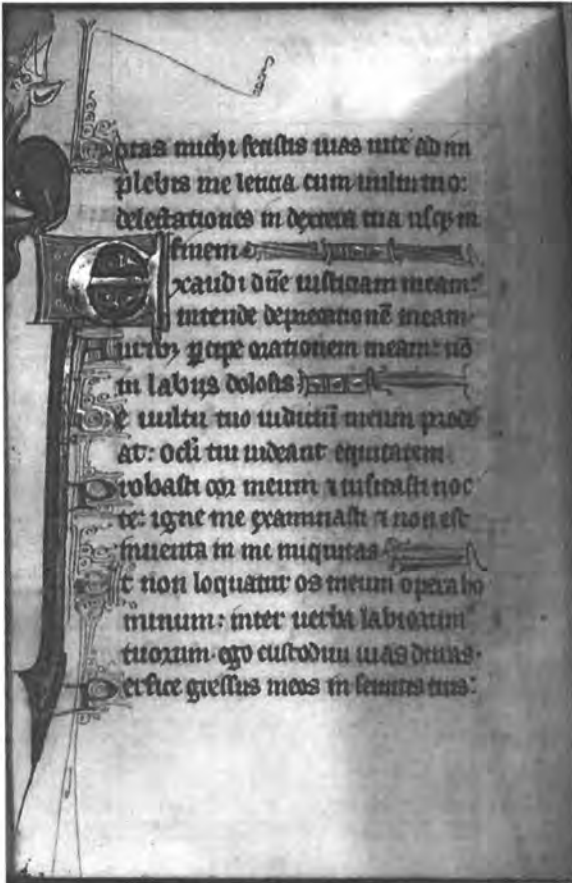 Notas michi fecistis uias uite ad im
plebis me leticia cum uultu tuo:
delectationes in dextera tua usq; in
finem
Exaudi dn̄e iusticiam meam:
intende deprecationē meam.
Aurib; ꝑcipe orationem meam: nō
in labijs dolosis
De uultu tuo iudiciū meum prode
at: oc̄li tui uideant equitatem
Probasti cor meum ⁊ uisitasti noc
te: igne me examinasti ⁊ non est
inuenta in me iniquitas
Ut non loquatur os meum opera ho
minum: inter uerba labiorum
tuorum. ego custodiui uias duras.
Perfice gressus meos in semitis tuis: